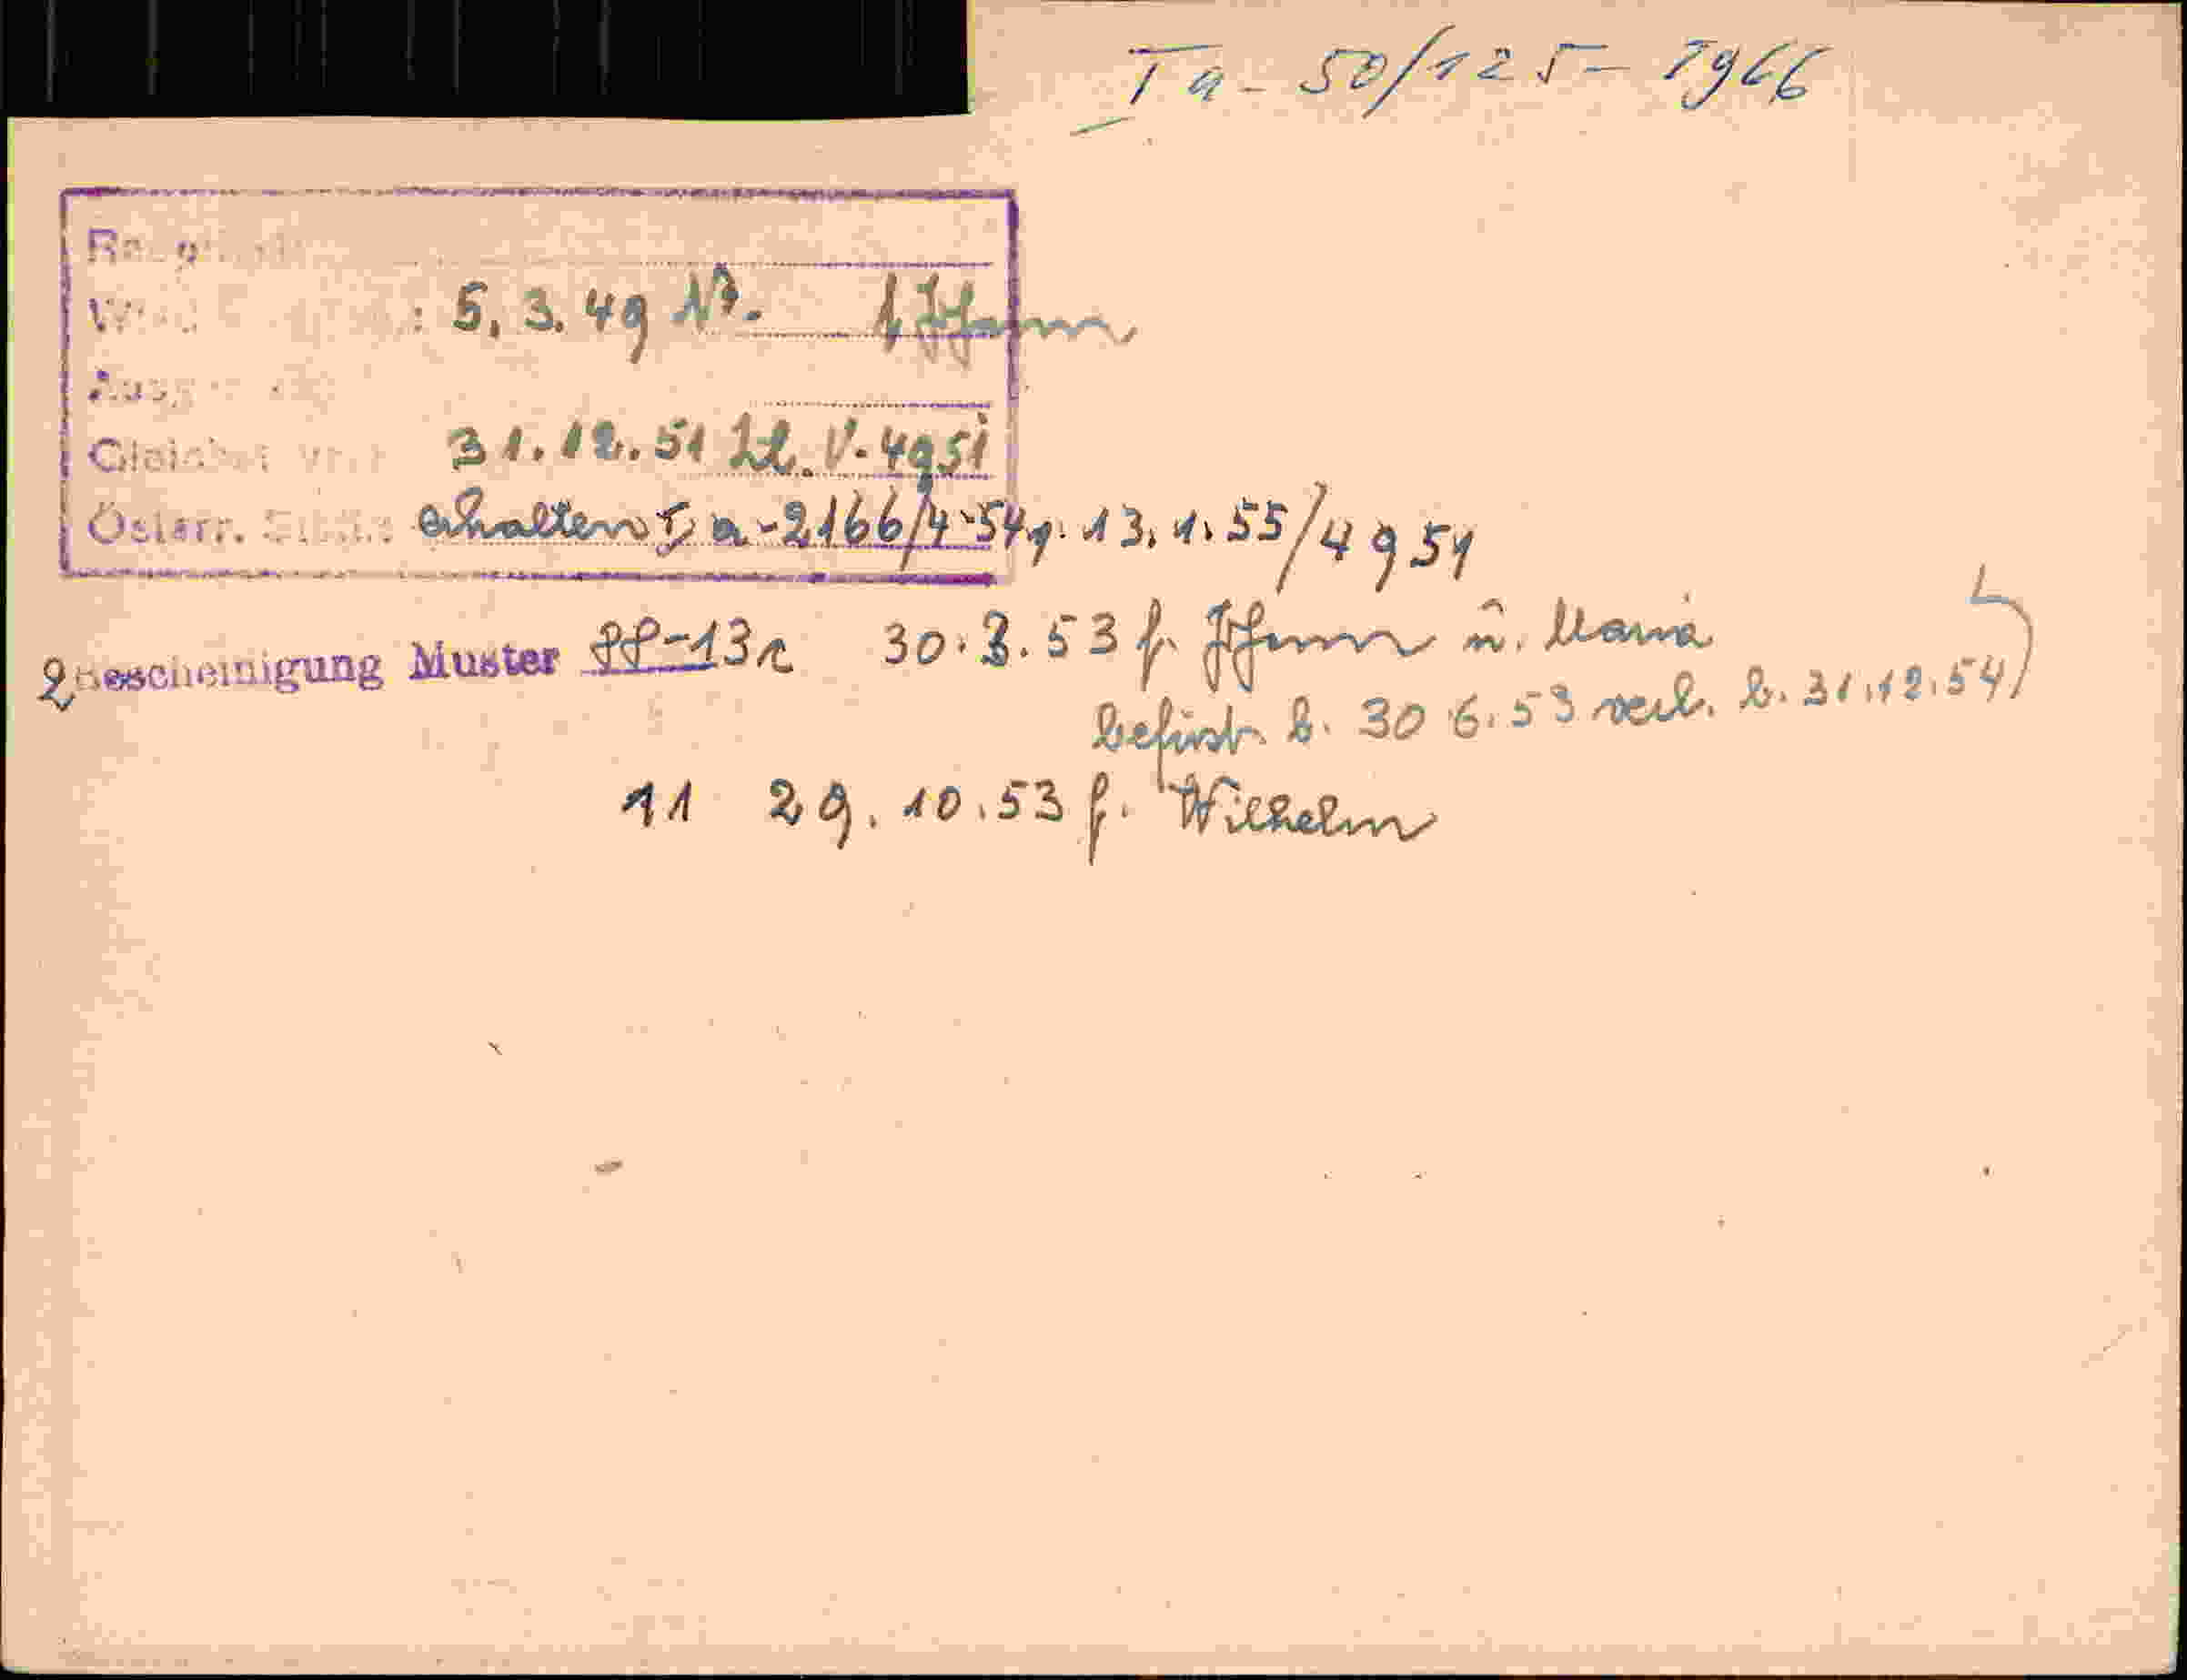 Ia - 50/125 - 1966
5. 3. 49 Nr. f. Johann
31. 12. 51 Zl. V. 4951
Österr. erhalten Ia-2166/4-54 13. 1. 55/4951
2 Bescheinigung Muster 30. 3. 53 f. Johann u. Maria
befrist. b. 30 6. 53 verl. b. 31. 12. 54
11 29. 10. 53 f. Wilhelm